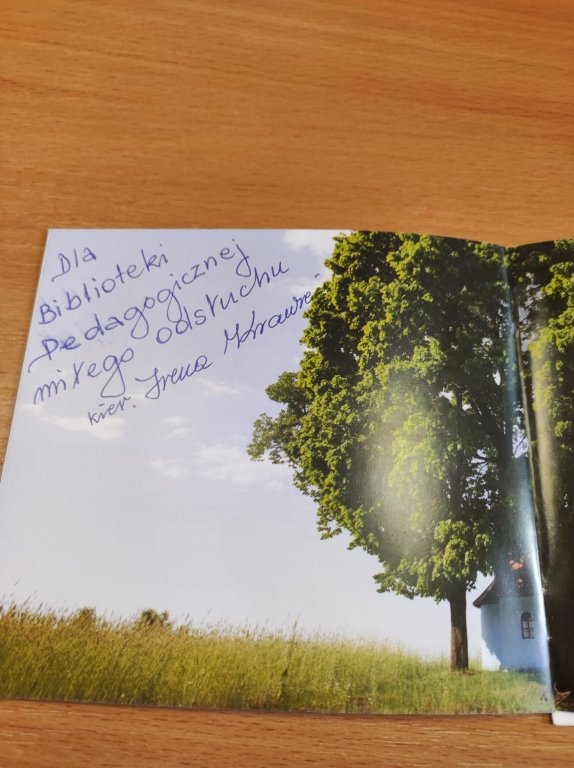 Dla
Biblioteki
Pedagogicznej
miłego odsłuchu
kier. Irena